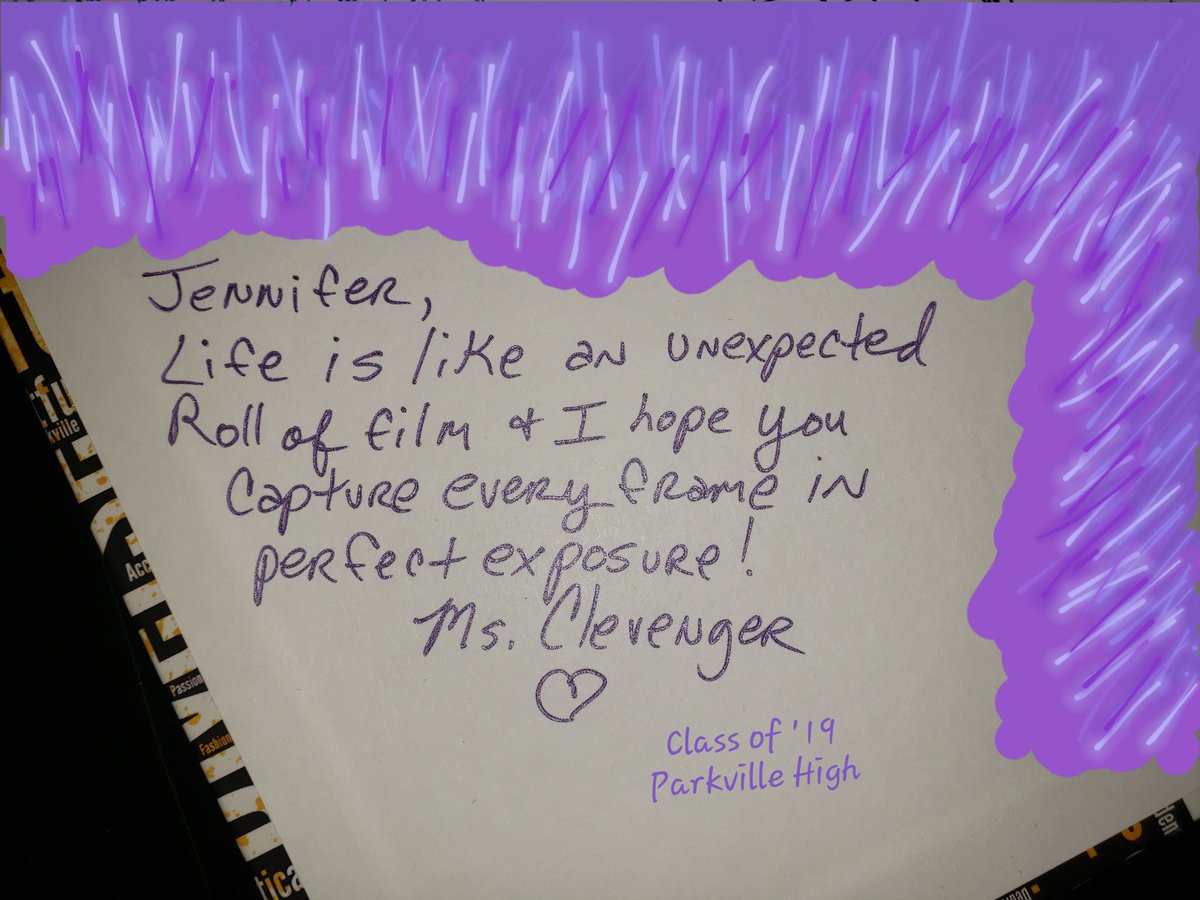 Jennifer,
Life is like an unexpected
Roll of film & I hope you
Capture every frame in
perfect exposure!
Ms. Clevenger
Class of '19
Parkville High
Passion
Fashion